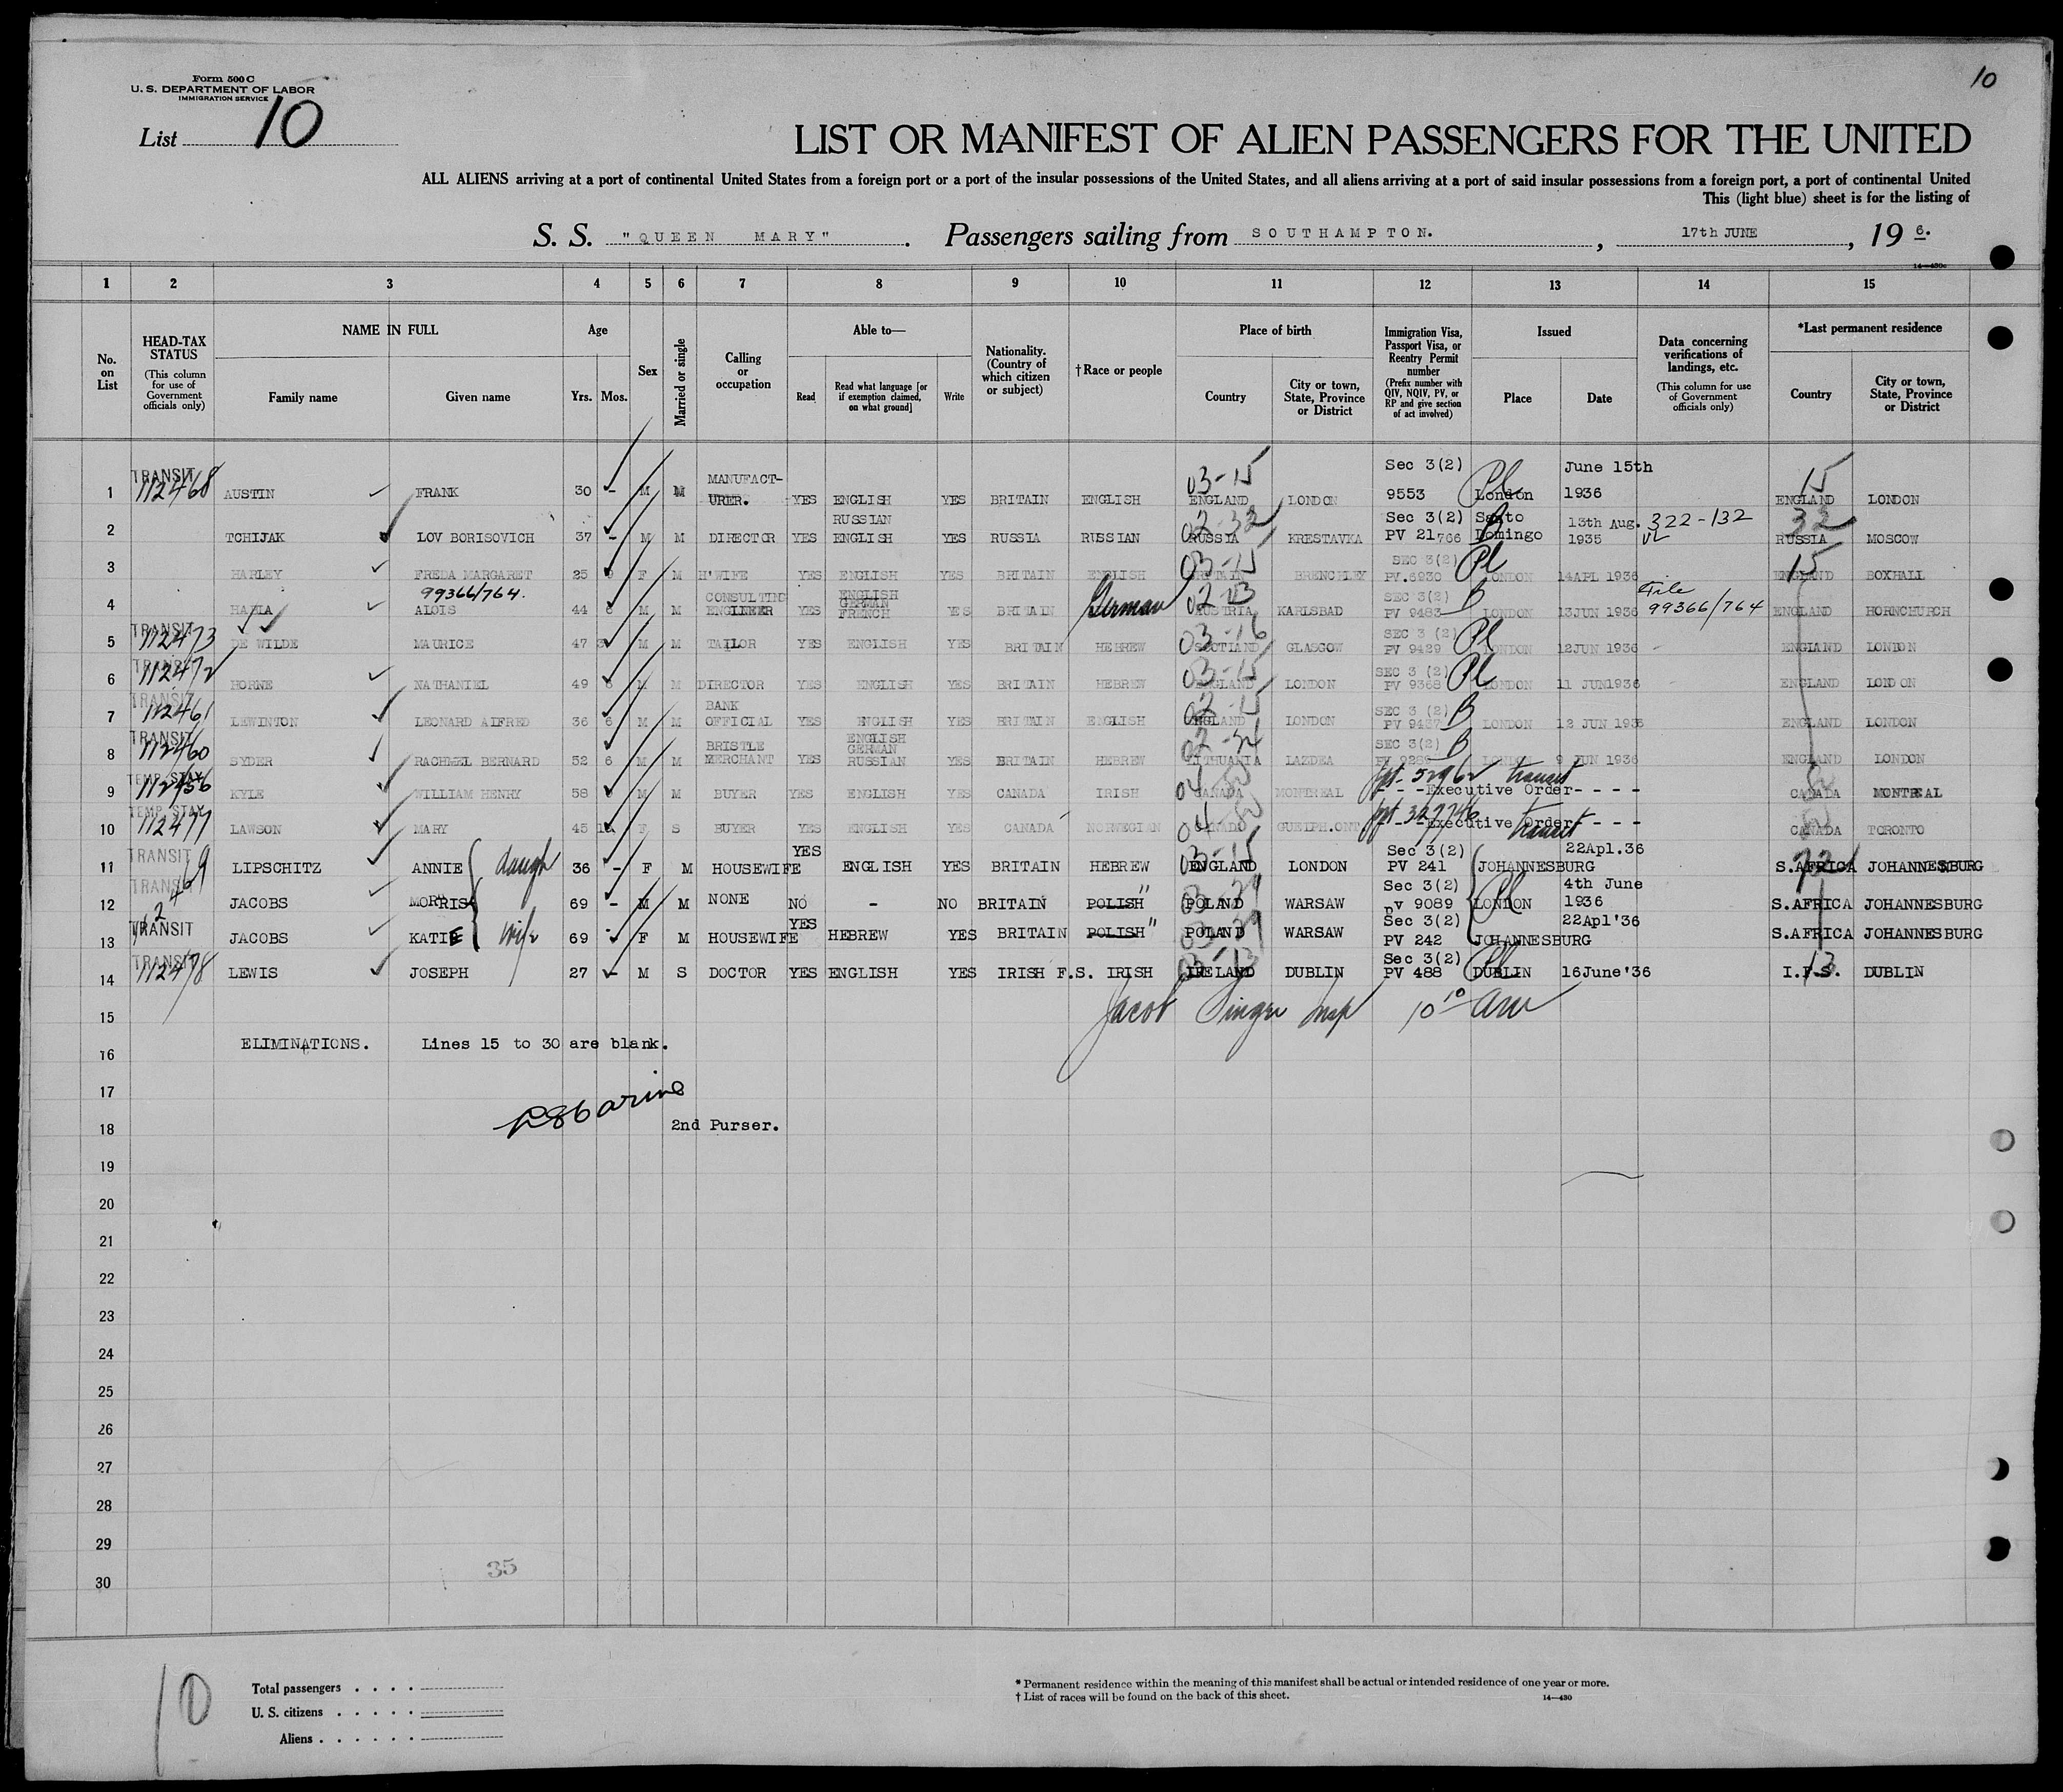 10
Form 500 C
U. S. DEPARTMENT OF LABOR
IMMIGRATION SERVICE
List 10
LIST OR MANIFEST OF ALIEN PASSENGERS FOR THE UNITED
ALL ALIENS arriving at a port of continental United States from a foreign port or a port of the insular possessions of the United States, and all aliens arriving at a port of said insular possessions from a foreign port, a port of continental United
This (light blue) sheet is for the listing of
S. S. "QUEEN MARY". Passengers sailing from SOUTHAMPTON. , 17th JUNE , 19 6.
1 2 3 4 5 6 7 8 9 10 11 12 13 14 15
No. on List
HEAD-TAX STATUS (This column for use of Government officials only)
NAME IN FULL
Family name Given name
Age
Yrs. Mos.
Sex
Married or single
Calling or occupation
Able to—
Read
Read what language [or if exemption claimed, on what ground]
Write
Nationality. (Country of which citizen or subject)
†Race or people
Place of birth
Country
City or town, State, Province or District
Immigration Visa, Passport Visa, or Reentry Permit number (Prefix number with QIV, NQIV, PV, or RP and give section of act involved)
Issued
Place Date
Data concerning verifications of landings, etc. (This column for use of Government officials only)
*Last permanent residence
Country
City or town, State, Province or District
1 TRANSIT 112468 AUSTIN FRANK 30 - M M MANUFACT-URER. YES ENGLISH YES BRITAIN ENGLISH 03-15 ENGLAND LONDON Sec 3(2) 9553 London June 15th 1936 15 ENGLAND LONDON
2 TCHIJAK LOV BORISOVICH 37 - M M DIRECTOR YES RUSSIAN ENGLISH YES RUSSIA RUSSIAN 02-32 RUSSIA KRESTAVKA Sec 3(2) PV 21766 Santo Domingo 13th Aug. 1935 322-132 32 RUSSIA MOSCOW
3 HARLEY FREDA MARGARET 25 F M H'WIFE YES ENGLISH YES BRITAIN ENGLISH 03-15 BRITAIN BRENCHLEY SEC 3(2) PV.6930 Pl LONDON 14APL 1936 15 ENGLAND BOXHALL
99366/764.
4 ALOIS 44 M M CONSULTING ENGINEER YES ENGLISH GERMAN FRENCH YES BRITAIN German AUSTRIA KARLSBAD SEC 3(2) PV 9483 LONDON 13JUN 1936 File 99366/764 ENGLAND HORNCHURCH
5 TRANSIT 112473 DE WILDE MAURICE 47 M M TAILOR YES ENGLISH YES BRITAIN HEBREW 03-16 SCOTLAND GLASGOW SEC 3 (2) PV 9429 Pl LONDON 12JUN 1936 - ENGLAND LONDON
6 TRANSIT 112472 HORNE NATHANIEL 49 M M DIRECTOR YES ENGLISH YES BRITAIN HEBREW 03-15 ENGLAND LONDON SEC 3 (2) PV 9368 Pl LONDON 11 JUN1936 ENGLAND LONDON
7 TRANSIT 112461 LEWINTON LEONARD ALFRED 36 6 M M BANK OFFICIAL YES ENGLISH YES BRITAIN ENGLISH 02-15 ENGLAND LONDON SEC 3 (2) PV 9437 LONDON 12 JUN 1936 ENGLAND LONDON
8 TRANSIT 112460 SYDER RACHMEL BERNARD 52 6 M M BRISTLE MERCHANT YES ENGLISH GERMAN RUSSIAN YES BRITAIN HEBREW LITHUANIA LAZDEA SEC 3(2) LONDON 9 JUN 1936 ENGLAND LONDON
9 TEMP. STAY 112456 KYLE WILLIAM HENRY 58 M M BUYER YES ENGLISH YES CANADA IRISH CANADA MONTREAL transit - - -Executive Order- - - - CANADA MONTREAL
10 TEMP. STAY 112477 LAWSON MARY 45 F S BUYER YES ENGLISH YES CANADA NORWEGIAN CANADA GUELPH.ONT 327746 transit Executive Order - - - CANADA TORONTO
11 TRANSIT 69 LIPSCHITZ ANNIE daugh 36 - F M HOUSEWIFE YES ENGLISH YES BRITAIN HEBREW 03-15 ENGLAND LONDON Sec 3(2) PV 241 JOHANNESBURG 22Apl.36 S.AFRICA JOHANNESBURG
12 TRANSIT JACOBS MORRIS 69 - M M NONE NO - NO BRITAIN POLISH " POLAND WARSAW Sec 3(2) PV 9089 Pl LONDON 4th June 1936 S.AFRICA JOHANNESBURG
13 TRANSIT JACOBS KATIE wife 69 - F M HOUSEWIFE YES HEBREW YES BRITAIN POLISH " POLAND WARSAW Sec 3(2) PV 242 JOHANNESBURG 22Apl'36 S.AFRICA JOHANNESBURG
14 TRANSIT 112478 LEWIS JOSEPH 27 - M S DOCTOR YES ENGLISH YES IRISH F.S. IRISH 03-13 IRELAND DUBLIN Sec 3(2) PV 488 DUBLIN 16June'36 13 I.F.S. DUBLIN
15 Jacob Singer Insp 10 10 am
16 ELIMINATIONS. Lines 15 to 30 are blank.
17
18 2nd Purser.
19
20
21
22
23
24
25
26
27
28
29
30
35
10
Total passengers . . . .
U. S. citizens . . . . .
Aliens . . . . . .
* Permanent residence within the meaning of this manifest shall be actual or intended residence of one year or more.
† List of races will be found on the back of this sheet. 14—430